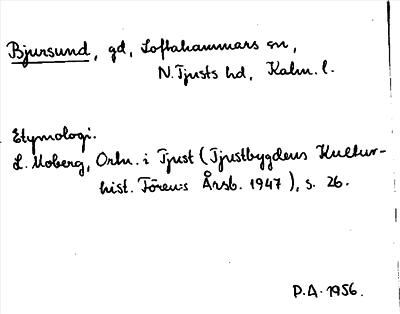 Bjursund, gd, Loftahammars sn,
N. Tjusts hd, Kalm. l.
Etymologi.
L. Moberg, Ortn. i Tjust (Tjustbygdens Kultur-
hist. Fören:s Årsb. 1947), s. 26.
P.A. 1956.